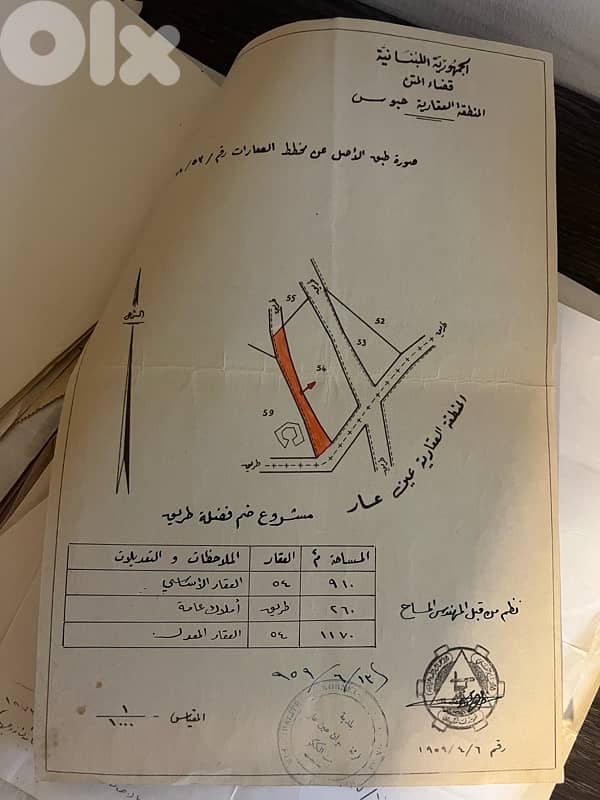 olx
الجمهورية اللبنانية
قضاء المتن
المنطقة العقارية حبوس
صورة طبق الأصل عن مخطط العقارات رقم /٥٣/
الشمال
55
طريق
طريق
52
طريق
53
54
59
طريق
طريق
المنطقة العقارية عين عار
مشروع ضم فضلة طريق
المساحة م٢ العقار الملاحظات و التعديلات
٩١٠ ٥٤ العقار الأساسي
٢٦٠ طريق أملاك عامة
١١٧٠ ٥٤ العقار المعدل
نظم من قبل المهندس المساح
المقياس ١/١٠٠٠
بلدية
رقم ١٩٥٩/٤/٦